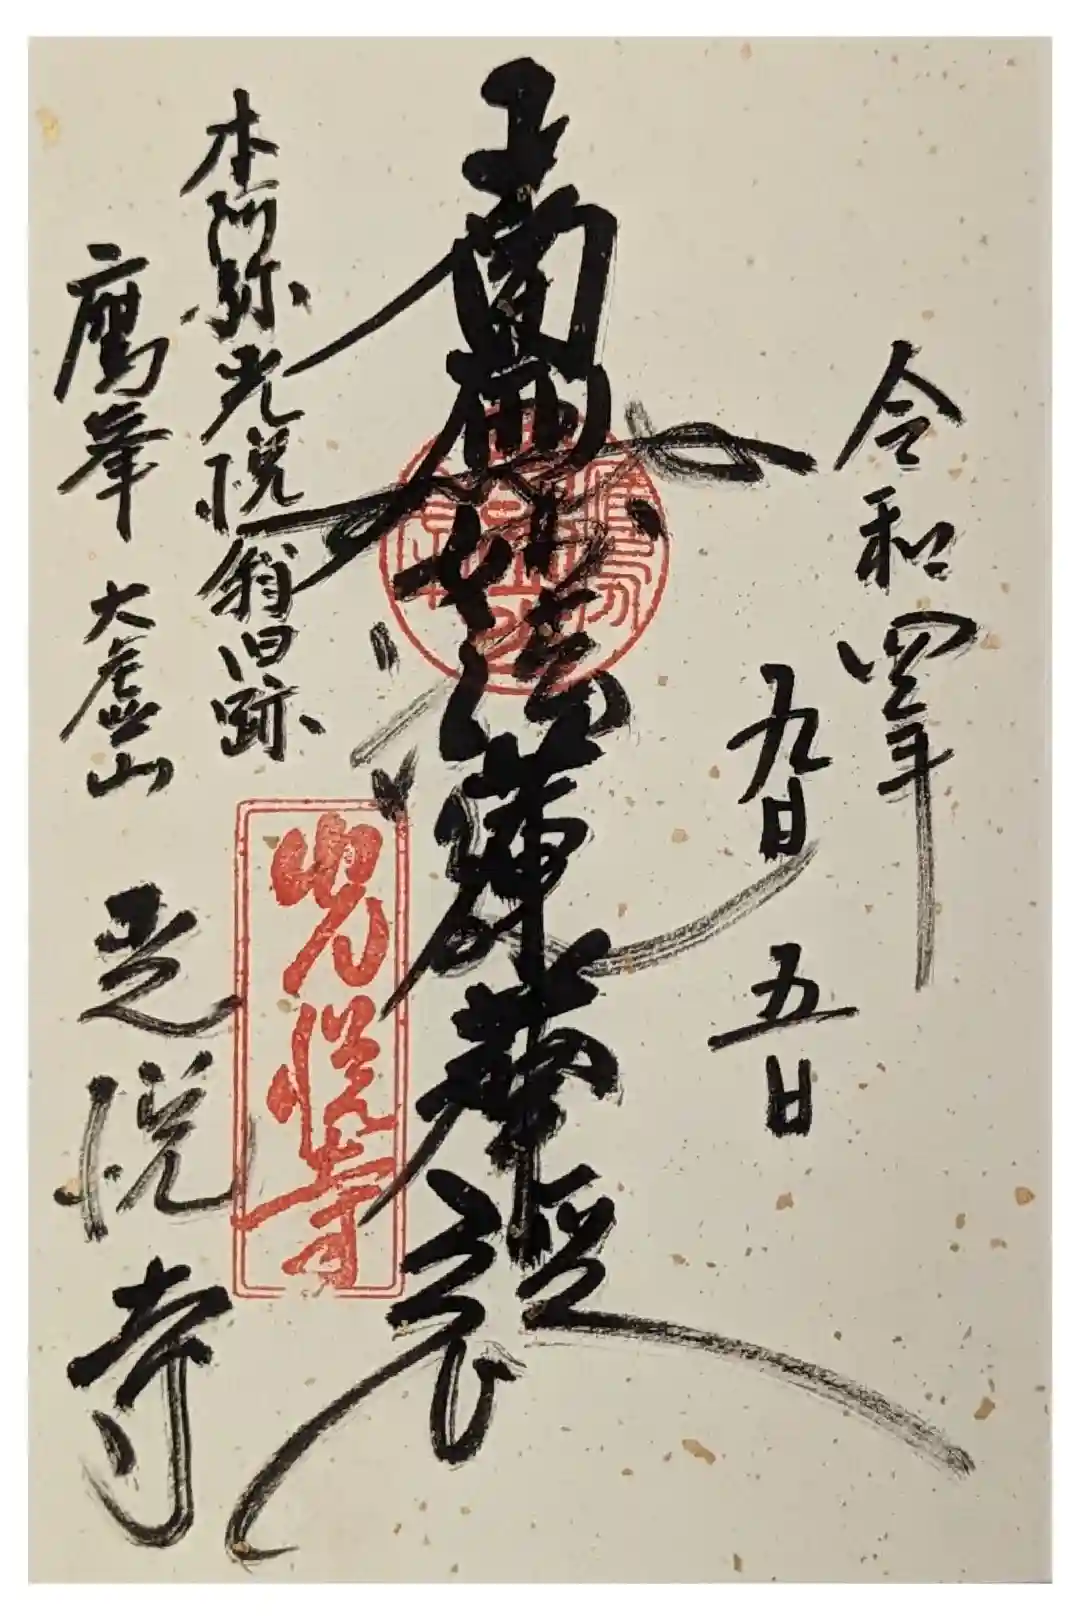 令和四年
九月
五日
南無妙法蓮華経
本阿弥光悦翁旧跡
光悦寺
鷹峯 大虚山
光悦寺